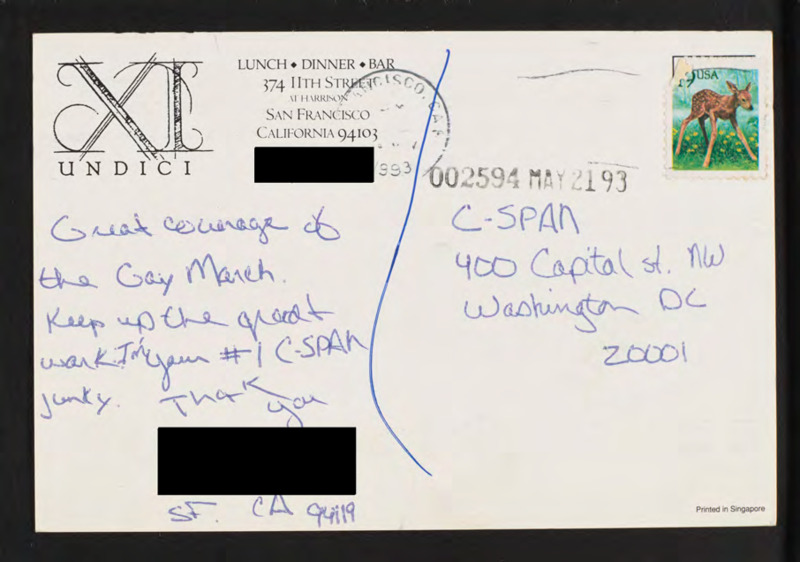 XI
UNDICI
LUNCH ♦ DINNER ♦ BAR
374 11TH STREET
AT HARRISON
SAN FRANCISCO
CALIFORNIA 94103
CISCO, CA
1993
002594 MAY 21 93
19 USA
Great coverage of
the Gay March.
Keep up the great
work. I'm your #1 C-SPAN
junky. Thank
you
SF. CA 94119
C-SPAN
400 Capital st. NW
Washington DC
20001
Printed in Singapore